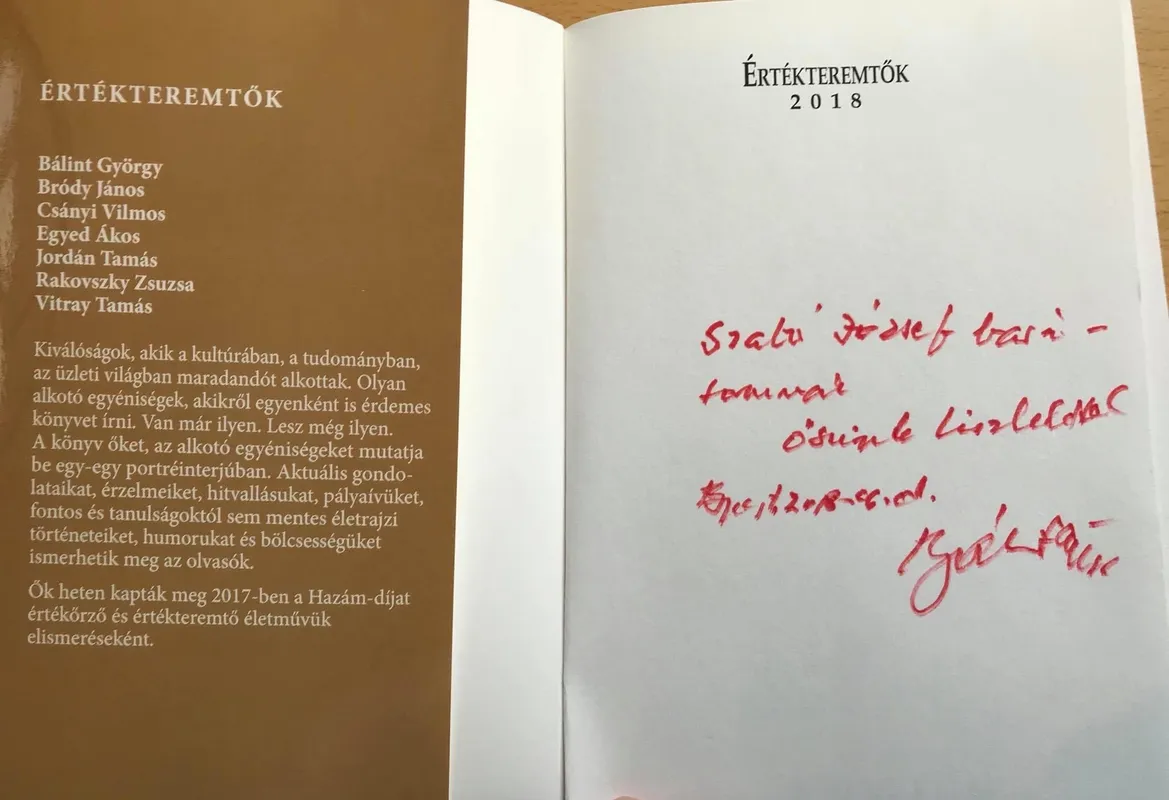 ÉRTÉKTEREMTŐK
Bálint György
Bródy János
Csányi Vilmos
Egyed Ákos
Jordán Tamás
Rakovszky Zsuzsa
Vitray Tamás
Kiválóságok, akik a kultúrában, a tudományban,
az üzleti világban maradandót alkottak. Olyan
alkotó egyéniségek, akikről egyenként is érdemes
könyvet írni. Van már ilyen. Lesz még ilyen.
A könyv őket, az alkotó egyéniségeket mutatja
be egy-egy portréinterjúban. Aktuális gondo-
lataikat, érzelmeiket, hitvallásukat, pályaívüket,
fontos és tanulságoktól sem mentes életrajzi
történeteiket, humorukat és bölcsességüket
ismerhetik meg az olvasók.
Ők heten kapták meg 2017-ben a Hazám-díjat
értékőrző és értékteremtő életművük
elismeréseként.
ÉRTÉKTEREMTŐK
2018
Szabó József bará-
tomnak
őszinte tisztelettel